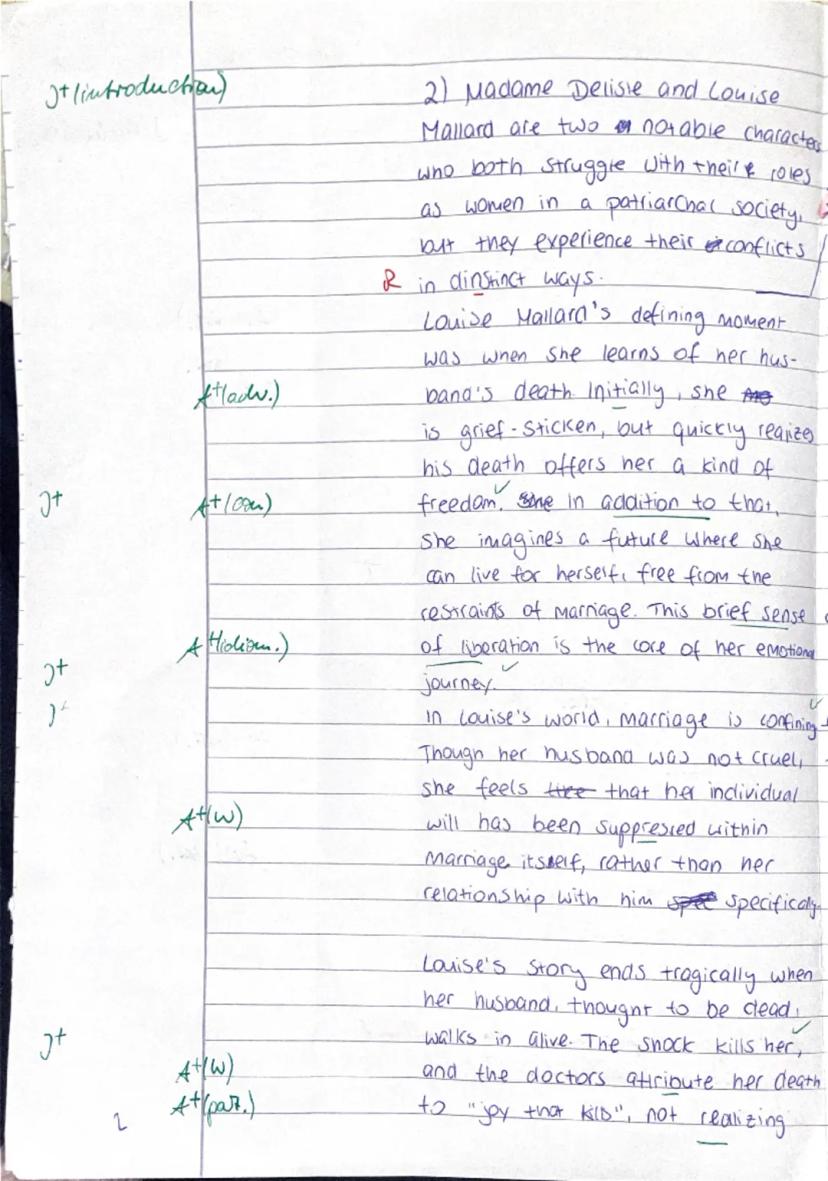 J+(introduction) 2) Madame Delisle and Louise
Mallard are two notable characters
who both struggle with their roles
as women in a patriarchal society,
but they experience their conflicts
R in dinstinct ways.
Louise Mallard's defining moment
was when she learns of her hus-
A+(adv.) band's death Initially, she
is grief-sticken, but quickly realizes
his death offers her a kind of
J+ A+(con) freedom. In addition to that,
she imagines a future where she
can live for herself, free from the
restraints of marriage. This brief sense
A+(idiom.) of liberation is the core of her emotional
J+ journey.
In Louise's world, marriage is confining
Though her husband was not cruel,
she feels that her individual
A+(W) will has been suppresied within
marriage itself, rather than her
relationship with him specificaly
Louise's story ends tragically when
her husband, thought to be dead,
J+ walks in alive. The shock kills her,
A+(W) and the doctors attribute her death
A+(par.) to "joy that kills", not realizing
2